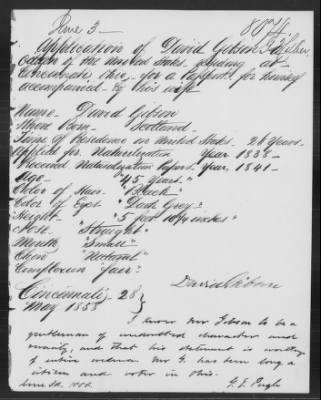 June 3 -
8074
Application of David Gibson
of the United States residing at
Cincinnati, Ohio, for a Passport for himself
accompanied by his wife
Name - David Gibson
Where Born - Scotland -
Time of Residence in United States. 24 Years -
Applied for Naturalization Year 1838 -
Received Naturalization Papers. Year, 1841 -
Age - "45 Years"
Color of Hair - "Black"
Color of Eyes "Dark Grey"
Height - "5 feet 10¾ inches"
Nose - "Straight"
Mouth "Small"
Chin "Natural"
Complexion "Fair"
David Gibson
Cincinnati 28
May 1858
I know Mr Gibson to be a
gentleman of character and
veracity, and that his statement is worthy
of entire credence. Mr G. has been long a
citizen and voter in Ohio.
June 3d. 1858.
G. E. Pugh